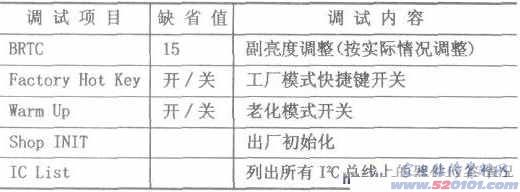 调试项目 缺省值 调试内容
BRTC 15 副亮度调整(按实际情况调整)
Factory Hot Key 开/关 工厂模式快捷键开关
Warm Up 开/关 老化模式开关
Shop INIT 出厂初始化
IC List 列出所有I²C总线上的器件
www.520101.com